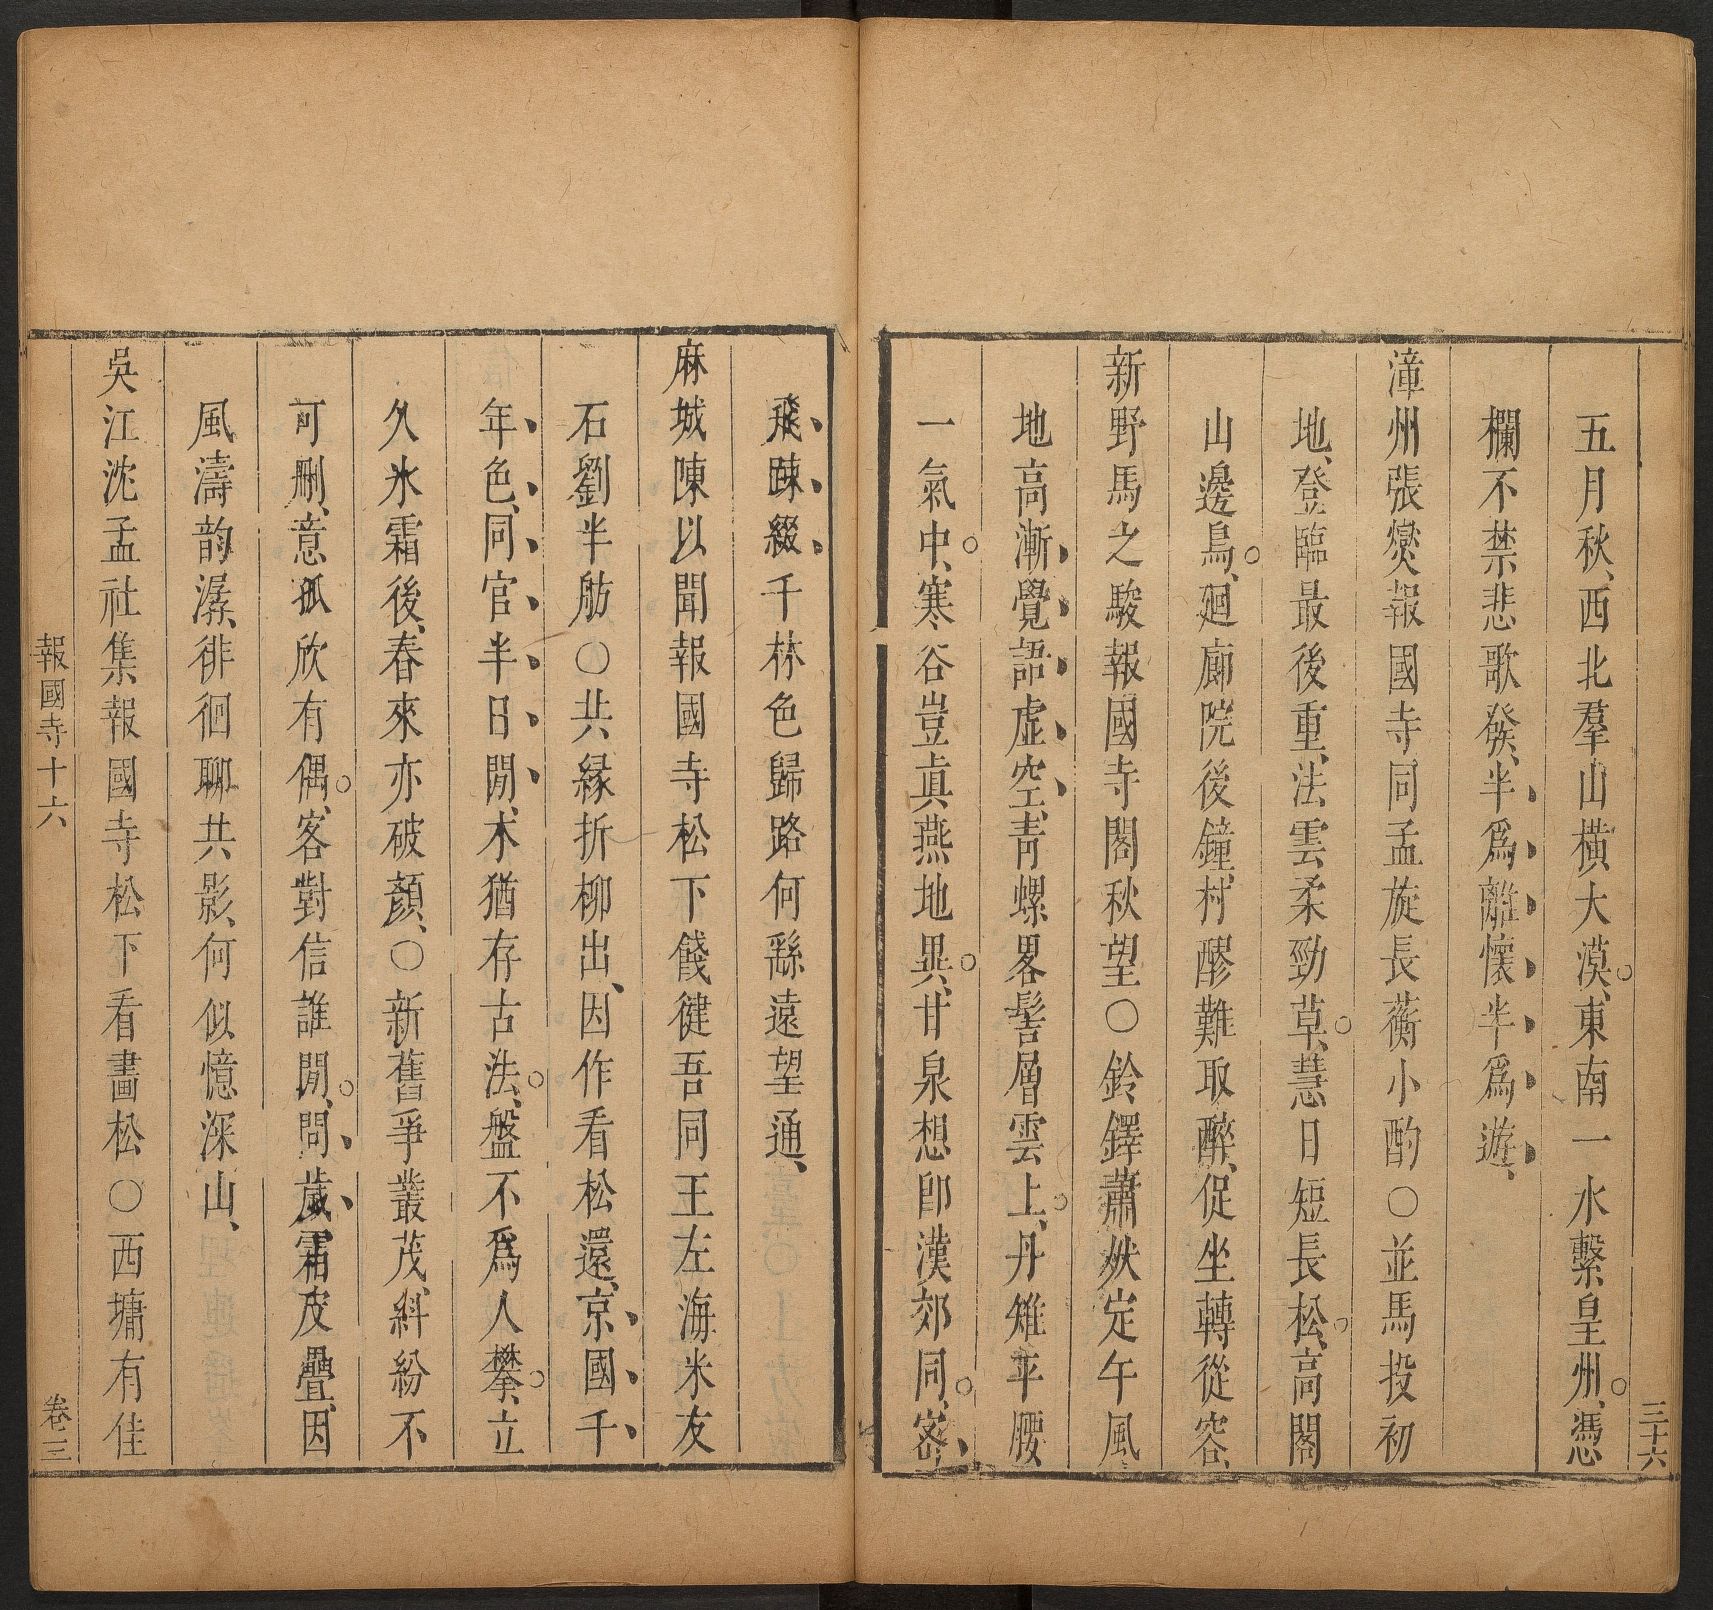 三十六
五月秋、西北羣山橫大漠、東南一水繫皇州、憑
欄不禁悲歌發、半爲離懷半爲遊、
漳州張燮報國寺同孟旋長蘅小酌○並馬投初
地、登臨最後重、法雲柔勁草、慧日短長松、高閣
山邊鳥、廻廊院後鐘、村醪難取醉、促坐轉從容、
新野馬之駿報國寺閣秋望○鈴鐸蕭然定午風
地高漸覺語虛空、靑螺畧髻層雲上、丹雉平腰
一氣中、寒谷豈眞燕地異、甘泉想卽漢郊同、密
飛踈綴千林色歸路何繇遠望通、
麻城陳以聞報國寺松下餞徤吾同王左海米友
石劉半舫○共緣折柳出、因作看松還、京國千
年色、同官半日閒、木猶存古法、盤不爲人攀、立
久氷霜後、春來亦破顏、○新舊爭叢茂、糾紛不
可刪、意孤欣有偶、客對信誰閒、問歲霜皮疊、因
風濤韵潺、徘徊聊共影、何似憶深山、
吳江沈孟社集報國寺松下看畵松○西墉有佳
報國寺十六
卷三